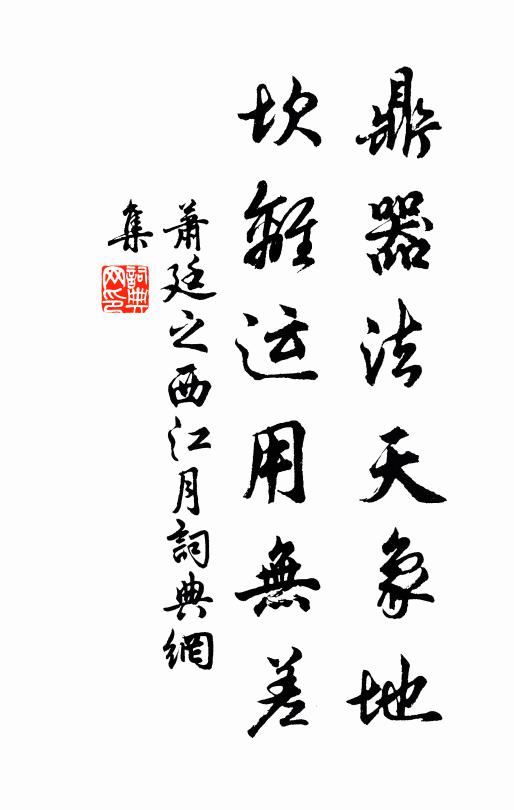 鼎器法天象地
坎離运用無差
蕭廷之西江月詞典網
集
詞典
网印